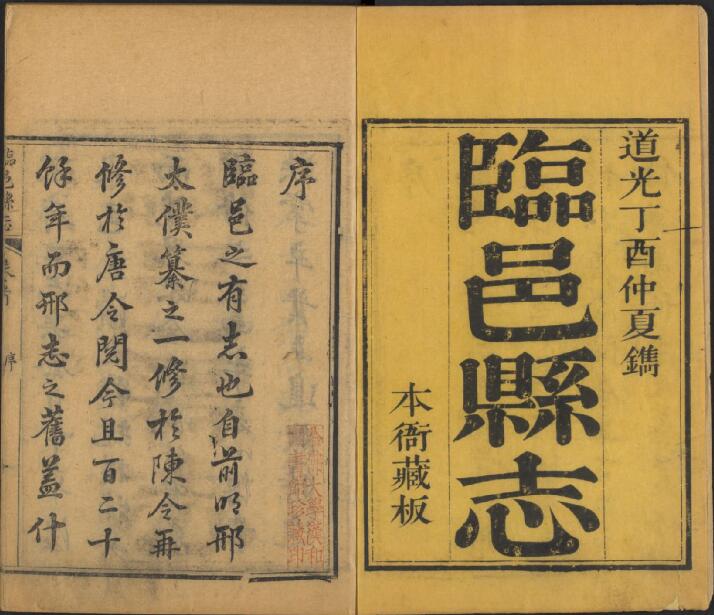 道光丁酉仲夏鐫
臨邑縣志
本衙藏板
序
臨邑之有志也自前明邢
太僕纂之一修於陳令再
修於唐令閱今且百二十
餘年而邢志之舊蓋什
臨邑縣志
卷首
序
哈佛大學漢和
圖書館珍藏印